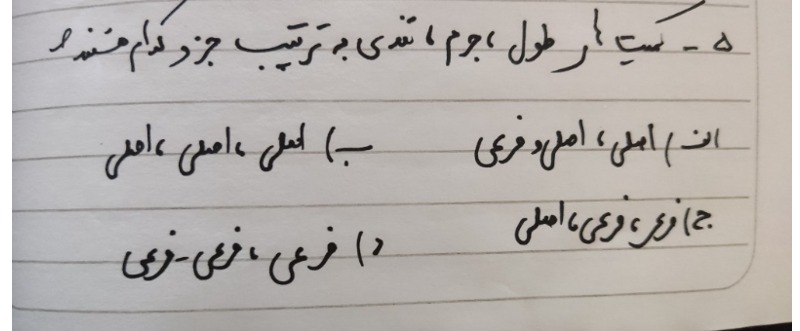 ۵ - کمیت های طول ، جرم ، تندی به ترتیب جزو کدام هستند؟
الف) اصلی ، اصلی و فرعی ب) اصلی ، اصلی ، اصلی
ج) فرعی ، فرعی ، اصلی
د) فرعی ، فرعی - فرعی